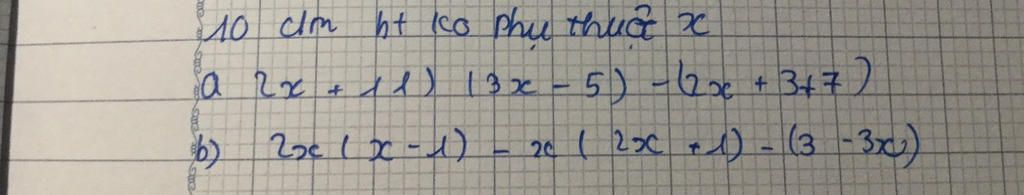 10 cm bt ko phụ thuộc x
a 2x + 11) (3x - 5) - (2x + 3+7)
b) 2x ( x - 1) - x ( 2x + 1) - (3 - 3x)